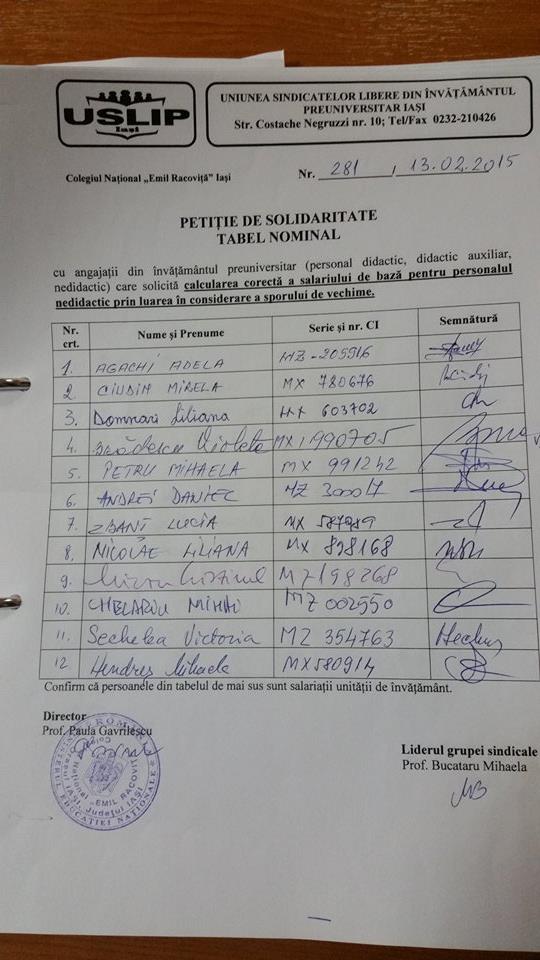 USLIP
Iași
UNIUNEA SINDICATELOR LIBERE DIN ÎNVĂȚĂMÂNTUL
PREUNIVERSITAR IAȘI
Str. Costache Negruzzi nr. 10; Tel/Fax 0232-210426
Colegiul Național „Emil Racoviță” Iași
Nr. 281 / 13.02.2015
PETIȚIE DE SOLIDARITATE
TABEL NOMINAL
cu angajații din învățământul preuniversitar (personal didactic, didactic auxiliar,
nedidactic) care solicită calcularea corectă a salariului de bază pentru personalul
nedidactic prin luarea în considerare a sporului de vechime.
Nr. crt. Nume și Prenume Serie și nr. CI Semnătură
1. AGACHI ADELA MZ-205916
2 CIUDIN MIRELA MX 780676
3. Domnari Liliana MX 603702
4. Violeta MX 990705
5. PETRU MIHAELA MX 991242
6. ANDREI DANIEL MZ
7. ZBANȚ LUCIA MX
8. NICOLAE LILIANA MX 898168
9. MZ 198268
10. CHELARIU MIHAI MZ 002550
11. Sechelea Victoria MZ 354763
12. Mihaela MX 580914
Confirm că persoanele din tabelul de mai sus sunt salariații unității de învățământ.
Director
Prof. Paula Gavrilescu
Liderul grupei sindicale
Prof. Bucataru Mihaela
MB
MINISTERUL EDUCAȚIEI NAȚIONALE
Național „EMIL RACOVIȚĂ”
IAȘI, Județul IAȘI